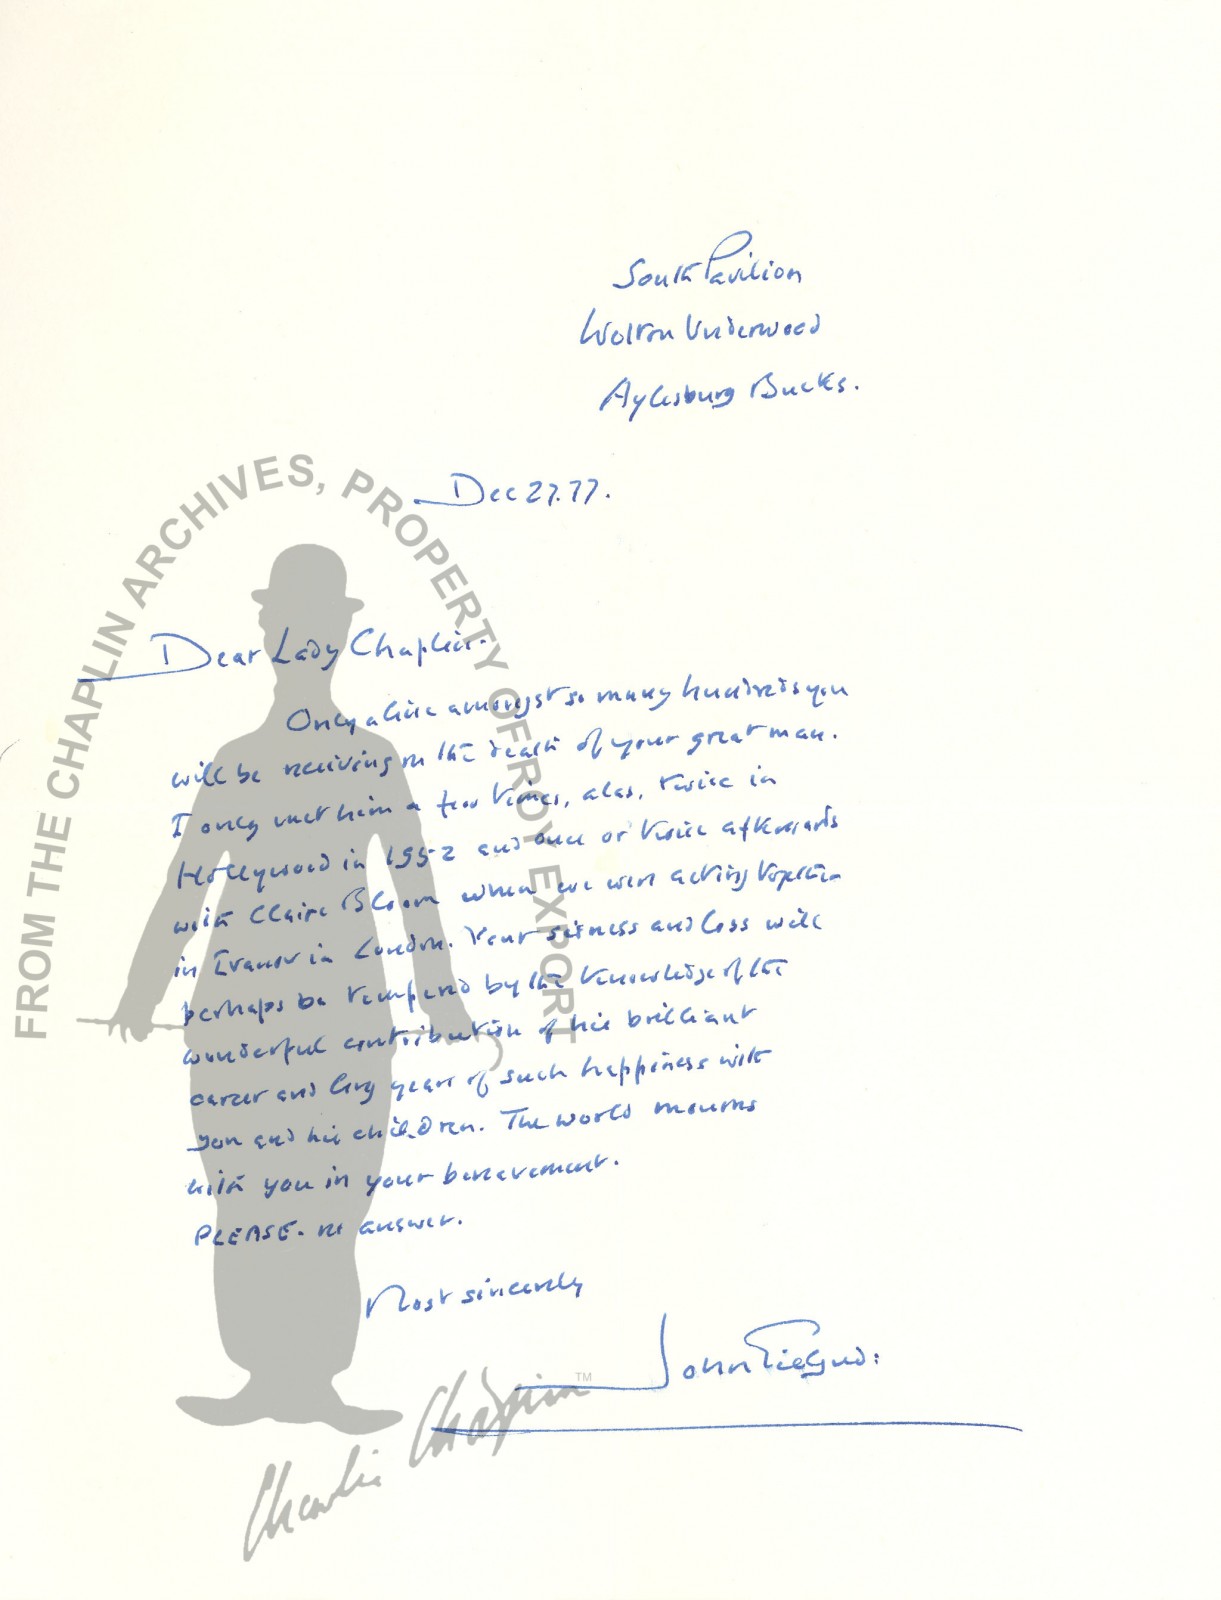 South Pavilion
Wotton Underwood
Aylesbury Bucks.
Dec 27.77.
Dear Lady Chaplin.
Only a line amongst so many hundreds you
will be receiving on the death of your great man.
I only met him a few times, alas, twice in
Hollywood in 1952 and once or twice afterwards
with Claire Bloom when we were acting together
in Ivanov in London. Your sadness and loss will
perhaps be tempered by the knowledge of the
wonderful contribution of his brilliant
career and long years of such happiness with
you and his children. The world mourns
with you in your bereavement.
PLEASE. no answer.
Most sincerely
John Gielgud:
FROM THE CHAPLIN ARCHIVES, PROPERTY OF ROY EXPORT
Charlie Chaplin ™